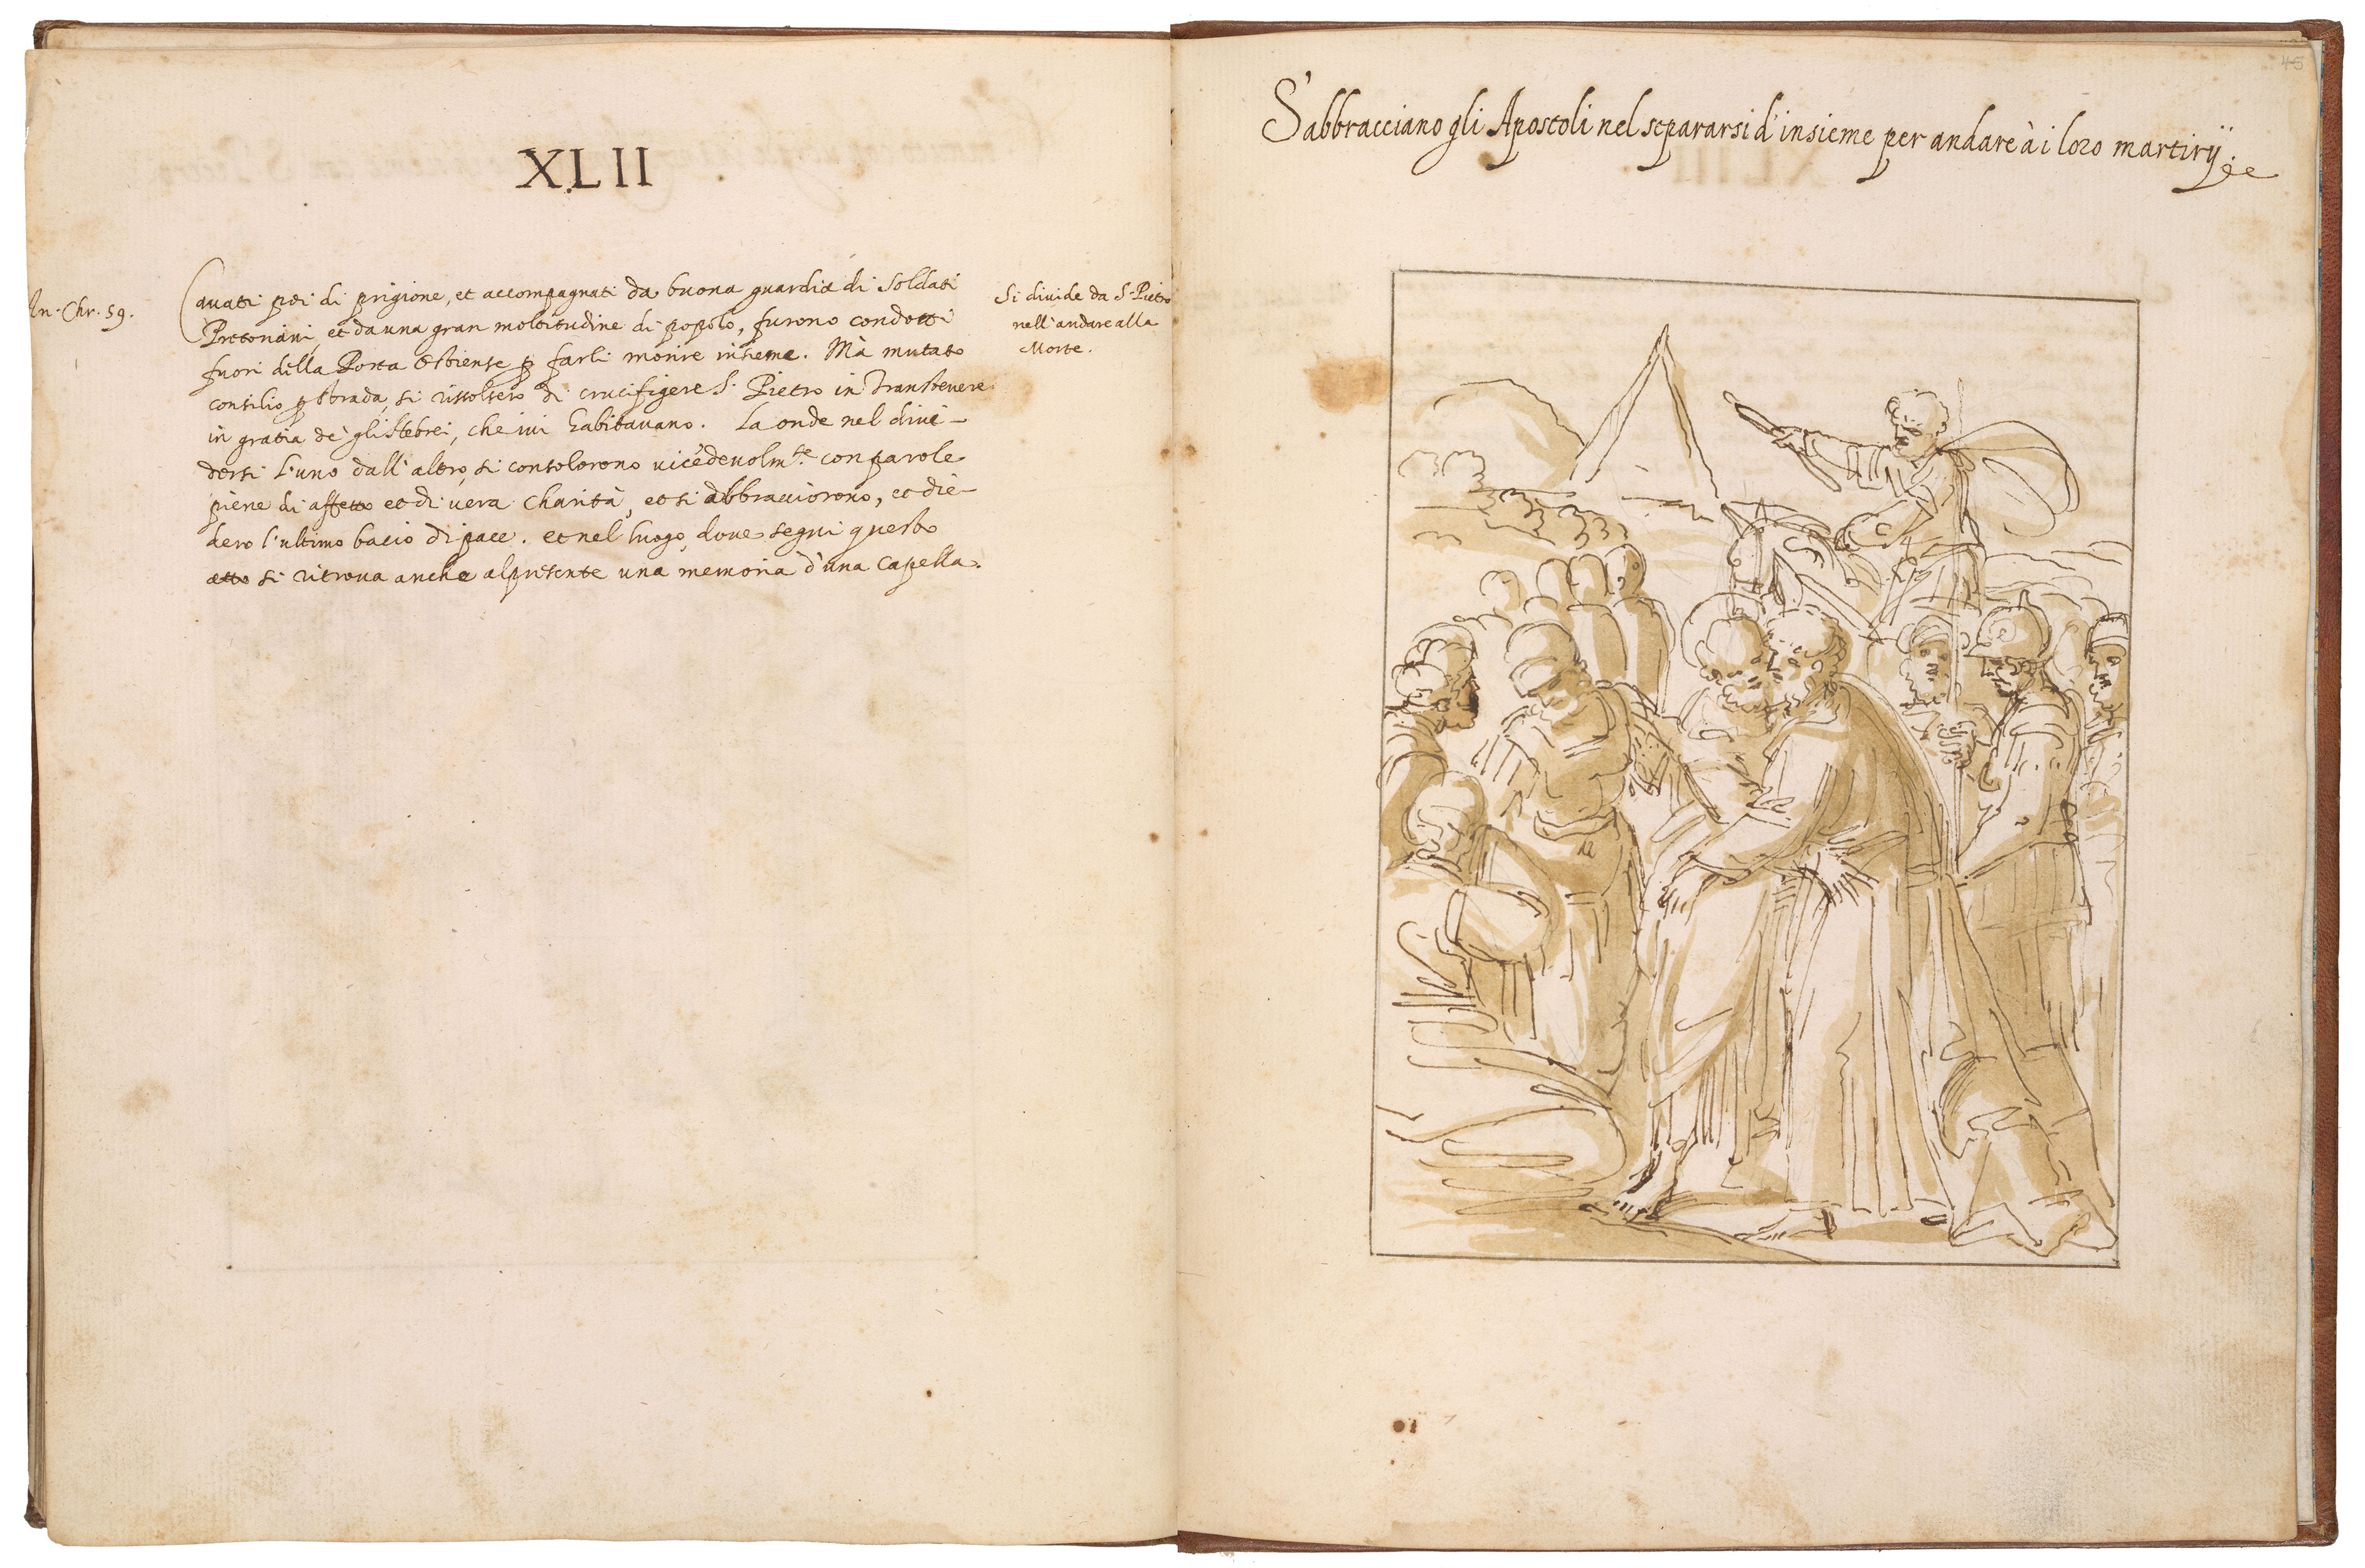 XLII
An. Chr. 59.
Cauati poi di prigione, et accompagnati da buona guardia di Soldati
Pretoriani, et da una gran moltitudine di popolo, furono condotti
fuori della Porta Ostiense p farli morire insieme. Mà mutato
consilio p strada, si rissolsero di crucifigere S. Pietro in Transteuere
in gratia de gli Hebrei, che iui habitauano. La onde nel diui-
dersi l'uno dall'altro, si consolorono vicēdeuolm.te con parole
piene di affetto et di uera Charità, et si abbracciorono, et die-
dero l'ultimo bacio di pace. et nel luogo, doue segui questo
atto si ritroua anche al presente una memoria d'una Capella.
Si diuide da S. Pietro
nell'andare alla
Morte.
45
S'abbracciano gli Apostoli nel separarsi d'insieme per andare à i loro martirij.